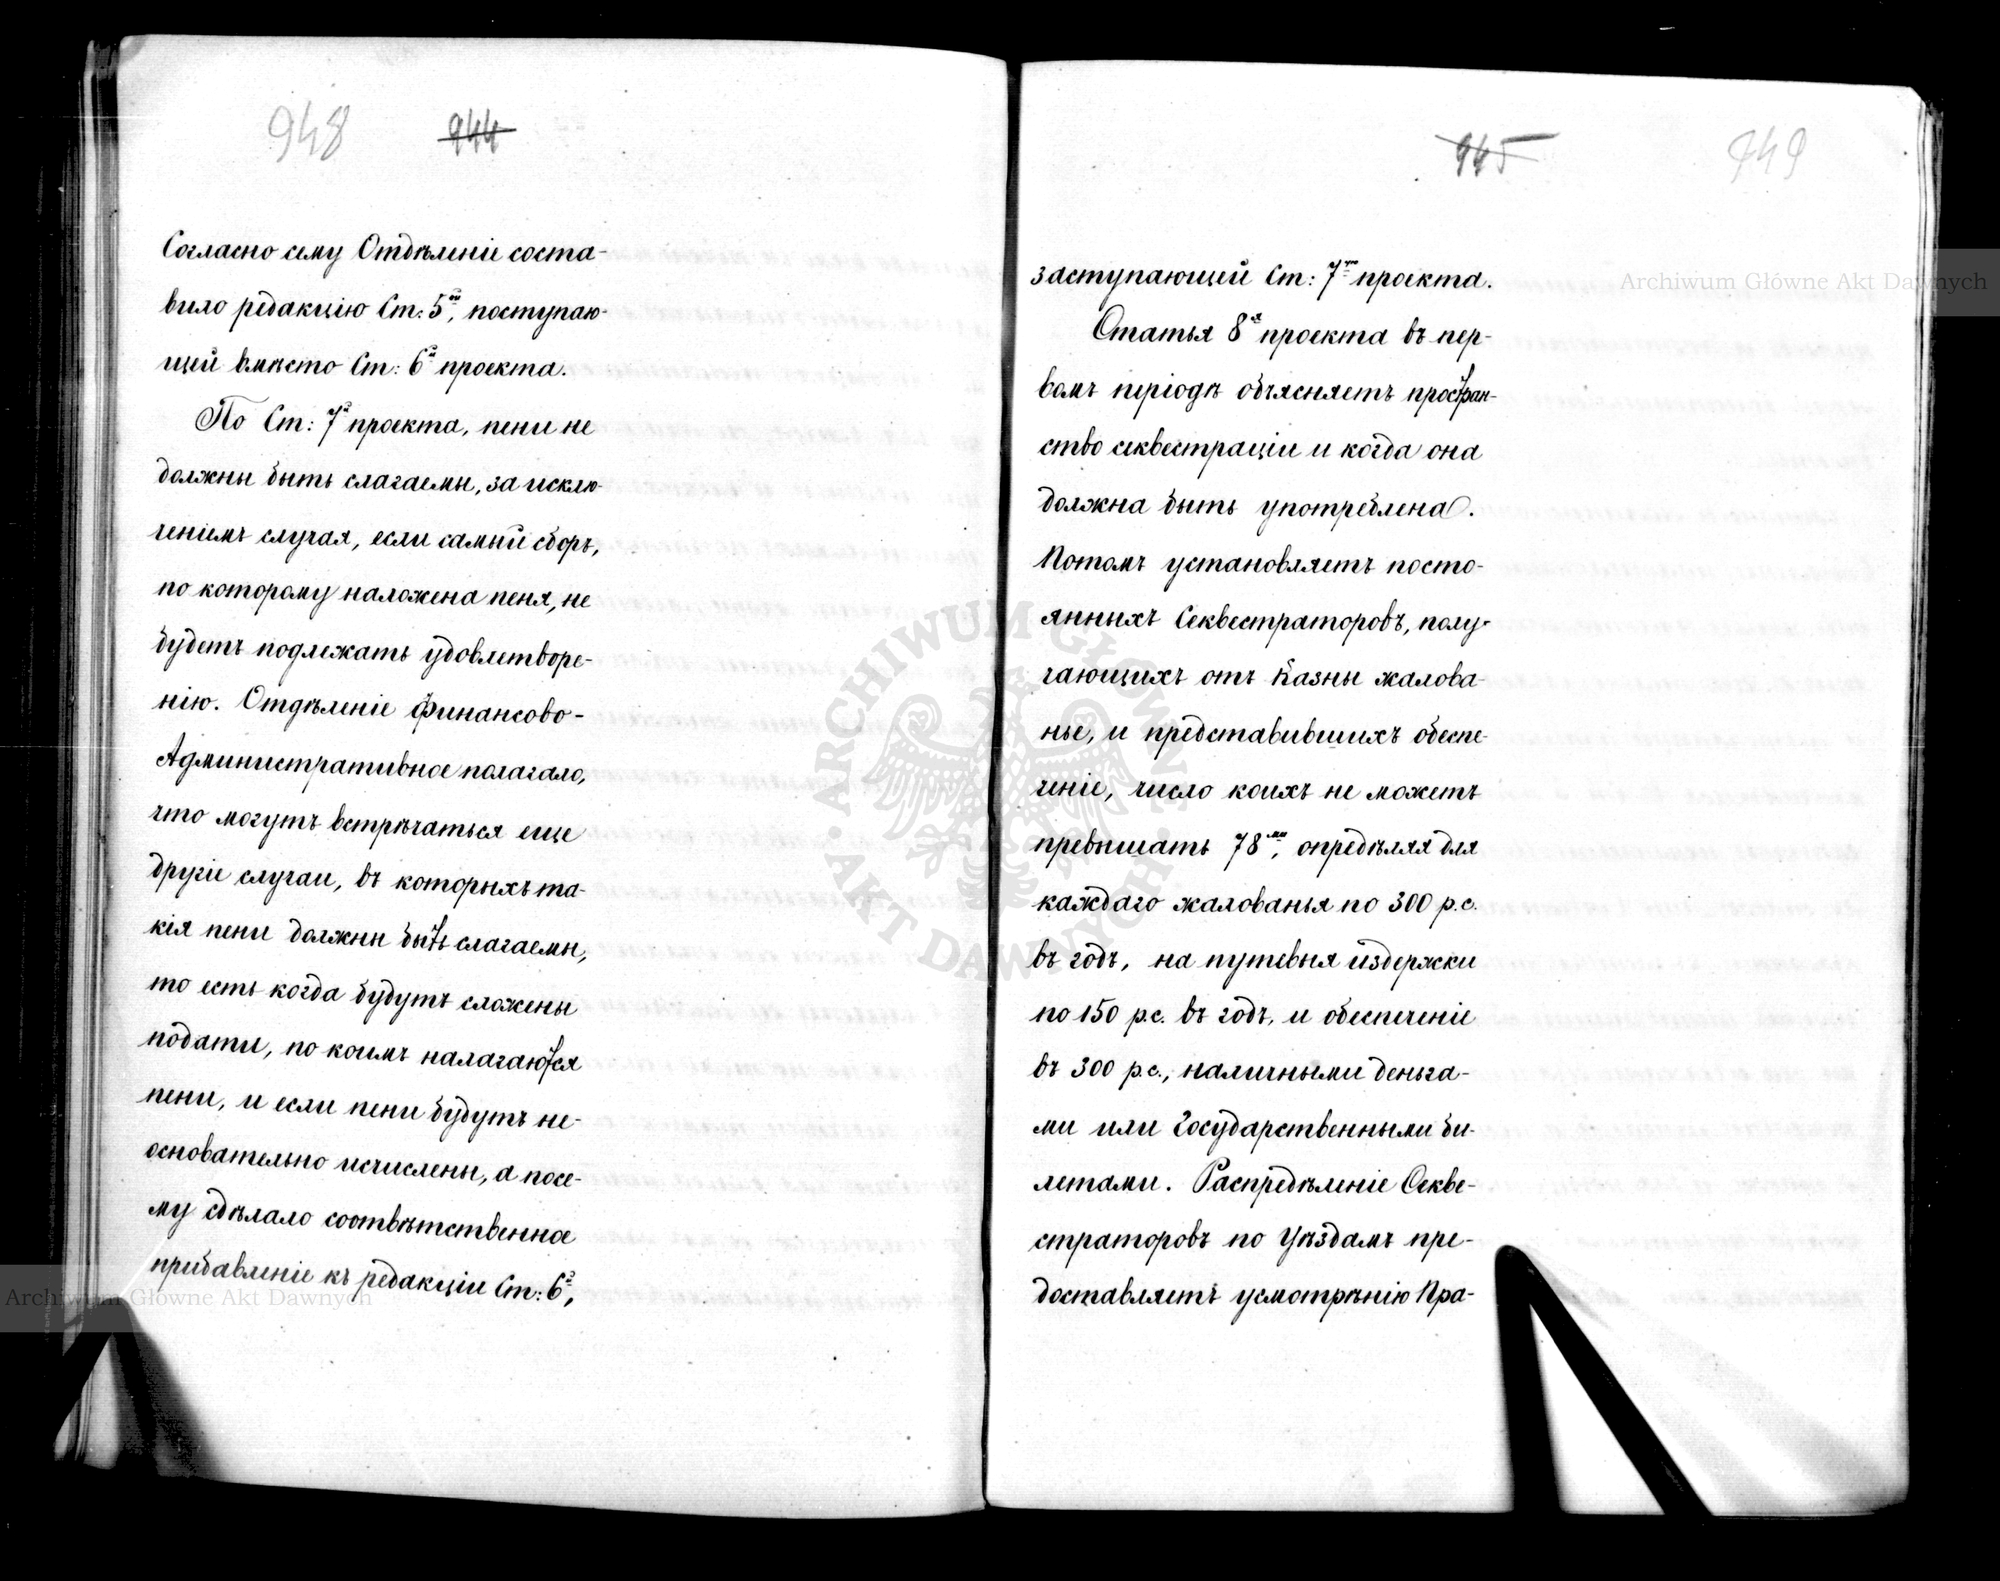 948 944
Согласно сему Отдѣленіе соста-
вило редакцію Ст: 5ой, поступаю-
щей вмѣсто Ст: 6й проекта.
По Ст: 7й проекта, пени не
должны быть слагаемы, за исклю-
ченіемъ случая, если самый сборъ,
по которому наложена пеня, не
будетъ подлежать удовлетворе-
нію. Отдѣленіе Финансово-
Административное полагало,
что могутъ встрѣчаться еще
другіе случаи, въ которыхъ та-
кія пени должны быть слагаемы,
то есть когда будутъ сложены
подати, по коимъ налагаются
пени, и если пени будутъ не-
основательно исчислены, а посе-
му сдѣлало соотвѣтственное
прибавленіе къ редакціи Ст: 6й,
945 949
заступающей Ст: 7ю проекта.
Статья 8я проекта въ пер-
вомъ періодѣ объясняетъ простран-
ство секвестраціи и когда она
должна быть употреблена.
Потомъ установляетъ посто-
янныхъ Секвестраторовъ, полу-
чающихъ отъ Казны жалова-
нье, и представившихъ обеспе-
ченіе, число коихъ не можетъ
превышать 78ми, опредѣляя для
каждаго жалованья по 300 р.с.
въ годъ, на путевыя издержки
по 150 р.с. въ годъ, и обеспеченіе
въ 300 р.с., наличными деньга-
ми или Государственными би-
летами. Распредѣленіе Секве-
страторовъ по Уѣздамъ пре-
доставляетъ усмотрѣнію Пра-
Archiwum Główne Akt Dawnych
Archiwum Główne Akt Dawnych
ARCHIWUM GŁÓWNE AKT DAWNYCH